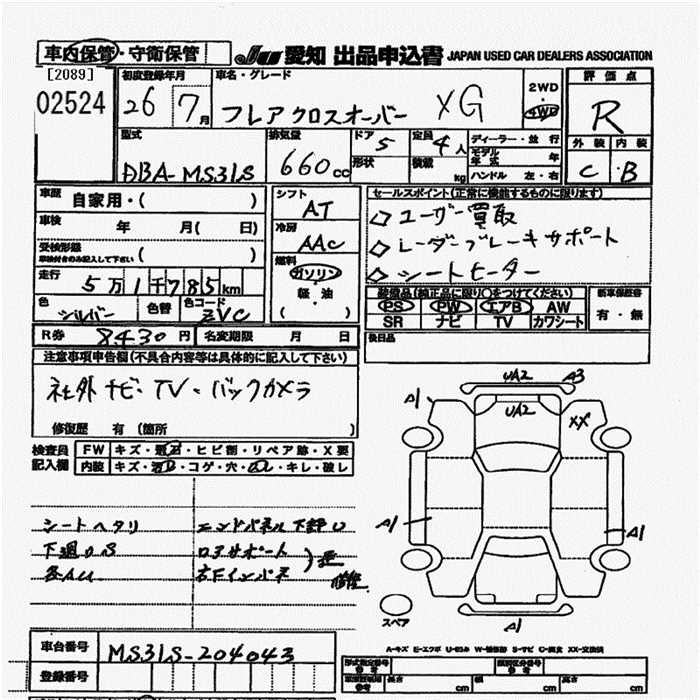 車内保管・守衛保管 JU 愛知 出品申込書 JAPAN USED CAR DEALERS ASSOCIATION
[2089]
02524
初度登録年月 26 7月
車名・グレード フレアクロスオーバー XG
2WD・4WD
評価点 R
外装 C 内装 B
型式 DBA-MS31S
排気量 660cc
ドア 5
形状
定員 4人
積載 kg
ディーラー・並行
モデル年式 年
ハンドル 左・右
車歴 自家用・( )
車検 年 月( 日)
受検形録 車検付きのみ記入して下さい ( )
走行 5万1千785km
色 シルバー 色替 色コード ZVC
シフト AT
冷房 AAC
燃料 ガソリン・軽・油 ( )
セールスポイント(正常に機能するものに限ります)
◇ユーザー買取
◇レーダーブレーキサポート
◇シートヒーター
装備品(純正品に限り○をつけてください)
PS PW エアB AW
SR ナビ TV カワシート
新車保証書 有・無
後日品
R券 8430円 名変期限 月 日
注意事項申告欄(不具合内容等は具体的に記入して下さい)
社外ナビ・TV・バックカメラ
修復歴 有(箇所 )
検査員記入欄
FW キズ・ ・ヒビ割・リペア跡・X要
内装 キズ・ ・コゲ・穴・ ・キレ・破レ
シートヘタリ
下廻りS
各AU
エンドパネル下
ロアサポート
右下インパネ
修復
UA2 A3
A1 UA2 XX
A1 A1
A1
スペア
A-キズ E-エクボ U-凹み W-補修跡 S-サビ C-腐食 XX-交換済
車台番号 MS31S-204043
登録番号
形式指定番号 参考
類別区分番号 参考
長さ cm 幅 cm 高さ cm